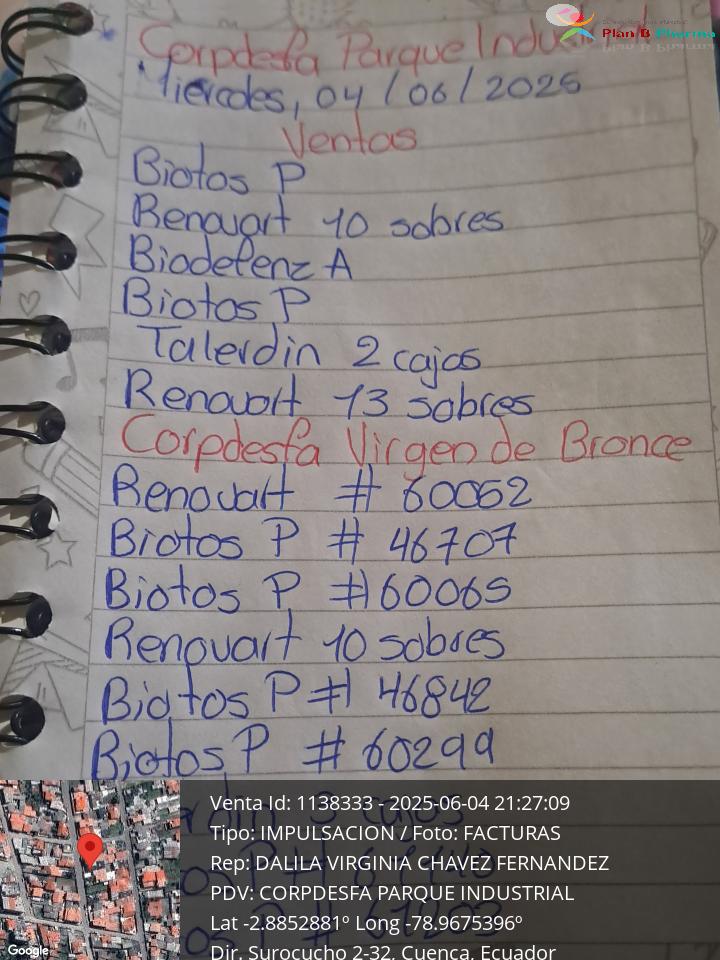 Plan B Pharma
Corpdesfa Parque Industrial
Miercoles, 04/06/2025
Ventas
Biotos P
Renovart 10 sobres
Biodefenz A
Biotos P
Talerdin 2 cajas
Renovart 13 sobres
Corpdesfa Virgen de Bronce
Renovart # 60052
Biotos P # 46707
Biotos P # 60065
Renovart 10 sobres
Biotos P # 46842
Biotos P # 60299
Venta Id: 1138333 - 2025-06-04 21:27:09
Tipo: IMPULSACION / Foto: FACTURAS
Rep: DALILA VIRGINIA CHAVEZ FERNANDEZ
PDV: CORPDESFA PARQUE INDUSTRIAL
Lat -2.8852881º Long -78.9675396º
Dir. Surocucho 2-32, Cuenca, Ecuador
Google